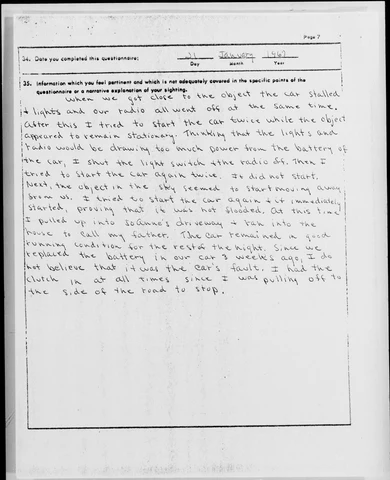 Page 7
34. Date you completed this questionnaire: 21 January 1967
Day Month Year
35. Information which you feel pertinent and which is not adequately covered in the specific points of the
questionnaire or a narrative explanation of your sighting.
When we got close to the object the car stalled
+ lights and our radio all went off at the same time.
After this I tried to start the car twice while the object
appeared to remain stationary. Thinking that the lights and
radio would be drawing too much power from the battery of
the car, I shut the light switch + the radio off. Then I
tried to start the car again twice. It did not start.
Next, the object in the sky seemed to start moving away
from us. I tried to start the car again + it immediately
started, proving that it was not flooded. At this time
I pulled up into driveway + ran into the
house to call my father. The car remained in good
running condition for the rest of the night. Since we
replaced the battery in our car 3 weeks ago, I do
not believe that it was the car's fault. I had the
clutch in at all times since I was pulling off to
the side of the road to stop.